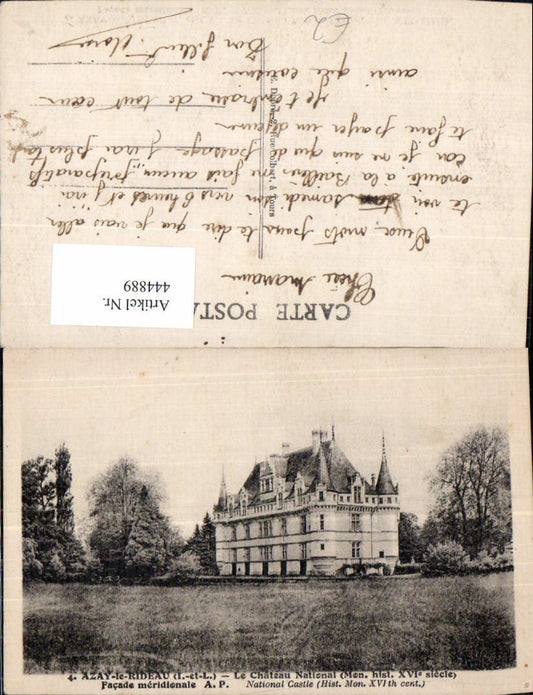 CARTE POSTA
Chère marraine
Deux mots pour te dire que je vais aller
te voir samedi soir vers 6 heures et j'irai
ensuite a la Baillée ne fait aucun préparatifs
car je ne suis que de passage j'irai plus tard
te faire payer un déjeuner
Je t'embrasse de tout cœur
ainsi que cousine
Ton filleul
Artikel Nr.
444889
4. AZAY-le-RIDEAU (I.-et-L.) — Le Château National (Mon. hist. XVIe siècle)
Façade méridionale A. P. National Castle (Hist. Mon. XVIth cent.)